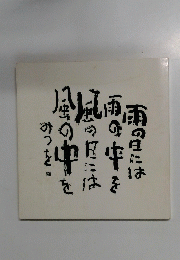 雨の日には
雨の中を
風の日には
風の中を
みつを。